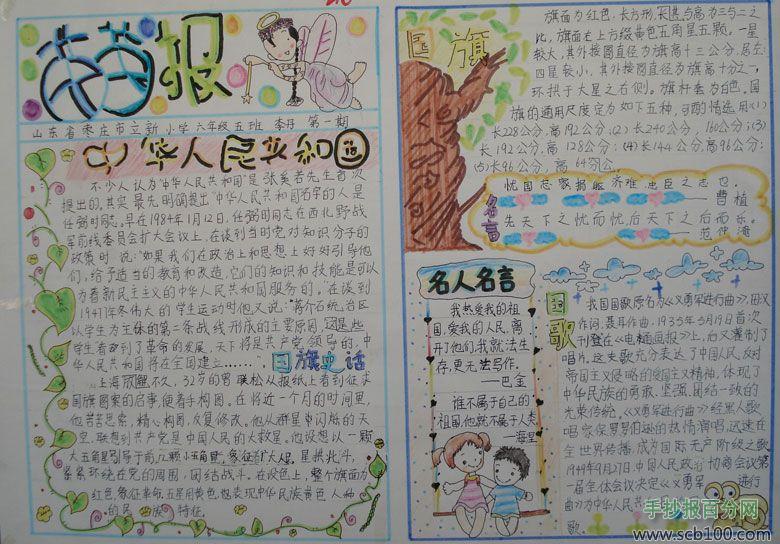 报
山东省枣庄市立新小学六年级五班 李丹 第一期
中华人民共和国
不少人认为"中华人民共和国"是张奚若先生首次
提出的,其实最先明确提出"中华人民共和国"名字的人是
任弼时同志。早在1984年1月12日,任弼时同志在西北野战
军前线委员会扩大会议上,在谈到当时党对知识分子的
政策时说:"如果我们在政治上和思想上好好引导他
们,给予适当的教育和改造,它们的知识和技能是可以
为着新民主主义的中华人民共和国服务的。在谈到
1947年冬伟大的学生运动时他又说:"蒋介石统治区
以学生为主体的第二条战线形成的主要原因,这是些
学生看到了革命的发展,天下将是共产党领导的,中
华人民共和国将在全国建立……
国旗史话
上海放醒不久,32岁的曾联松从报纸上看到征求
国旗图案的启事,便着手构图。在将近一个月的时间里,
他苦苦思索,精心构图,反复修改。他从群星中闪烁的天
空,联想到共产党是中国人民的大救星。他设想以一颗
大五角星引导于前,几颗小五角星,象征广大人民,星拱北斗,
紧紧环绕在党的周围,团结战斗。在设色上,整个旗面为
红色,象征革命,五星用黄色,也表现中华民族黄色人种
的民族特征。
国旗
旗面为红色,长方形,其长与高为三与二之
比,旗面左上方缀黄色五角星五颗。一星
较大,其外接圆直径为旗高十三公分,居左;
四星较小,其外接圆直径为旗高十分之一,
环拱于大星之右侧。旗杆套为白色。国
旗的通用尺度定为如下五种,可酌情选用(1)
长228公分,高192公分;(2)长240公分,160公分;(3)
长192公分,高128公分;(4)长144公分,高96公分;
(5)长96公分,高64公分
名言
忧国忘家捐躯济难,忠臣之志也。
——曹植
先天下之忧而忧后天下之后而乐。
——范仲淹
名人名言
我热爱我的祖
国,爱我的人民,离
开了他们,我就法生
存,更无法写作。
——巴金
谁不属于自己的
祖国,他就不属于人类
国歌
我国国歌原名为《义勇军进行曲》,田汉
作词,聂耳作曲,1935年5月19日首次
刊登在《电通画报》上,后又灌制了
唱片。这支歌充分表达了中国人民反对
帝国主义侵略的爱国主义精神,体现了
中华民族的勇敢、坚强、团结一致的
光荣传统。《义勇军进行曲》经黑人歌
唱家保罗罗伯逊的热情演唱,迅速在
全世界传播,成为国际无产阶级之歌
1949年9月27日,中国人民政治协商会议第
一届全体会议决定《义勇军进行
曲》为中华人民共
歌。
手抄报百分网
www.scb100.com